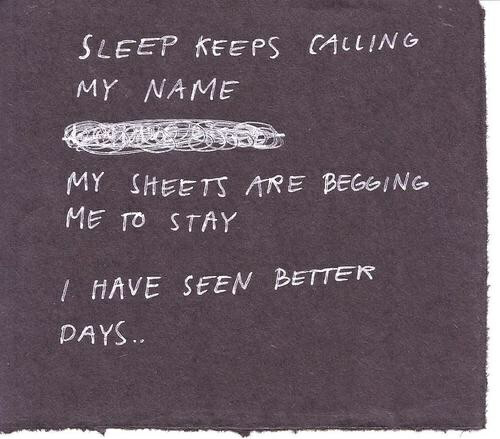 SLEEP KEEPS CALLING
MY NAME
MY SHEETS ARE BEGGING
ME TO STAY
I HAVE SEEN BETTER
DAYS..